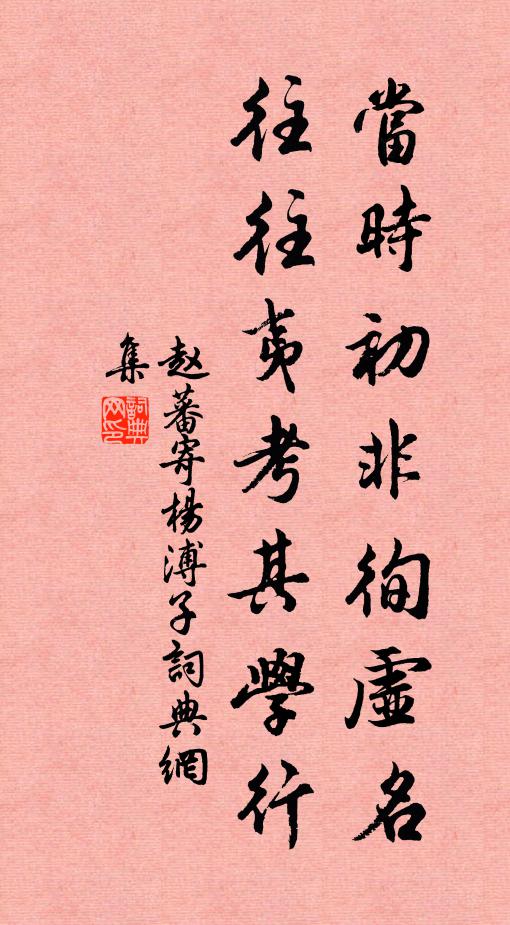 當時初非徇虛名
往往夷考其學行
赵蕃寄楊溥子詞典網
集
詞典網印